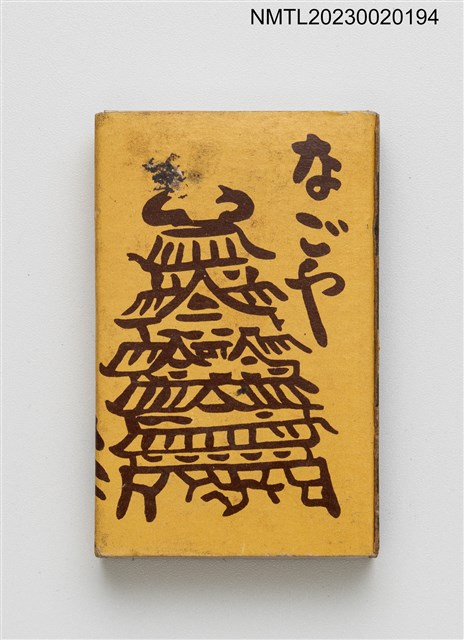 NMTL20230020194
なごや